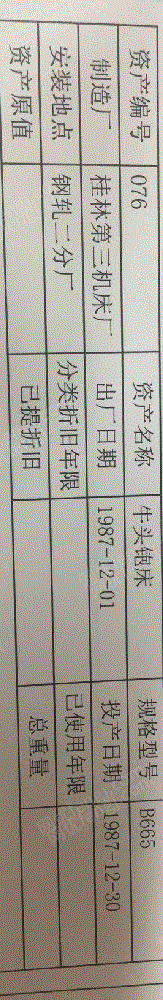 资产编号 076 资产名称 牛头铇床 规格型号 B665
制造厂 桂林第三机床厂 出厂日期 1987-12-01 投产日期 1987-12-30
安装地点 钢轧二分厂 分类折旧年限 已使用年限
资产原值 已提折旧 总重量